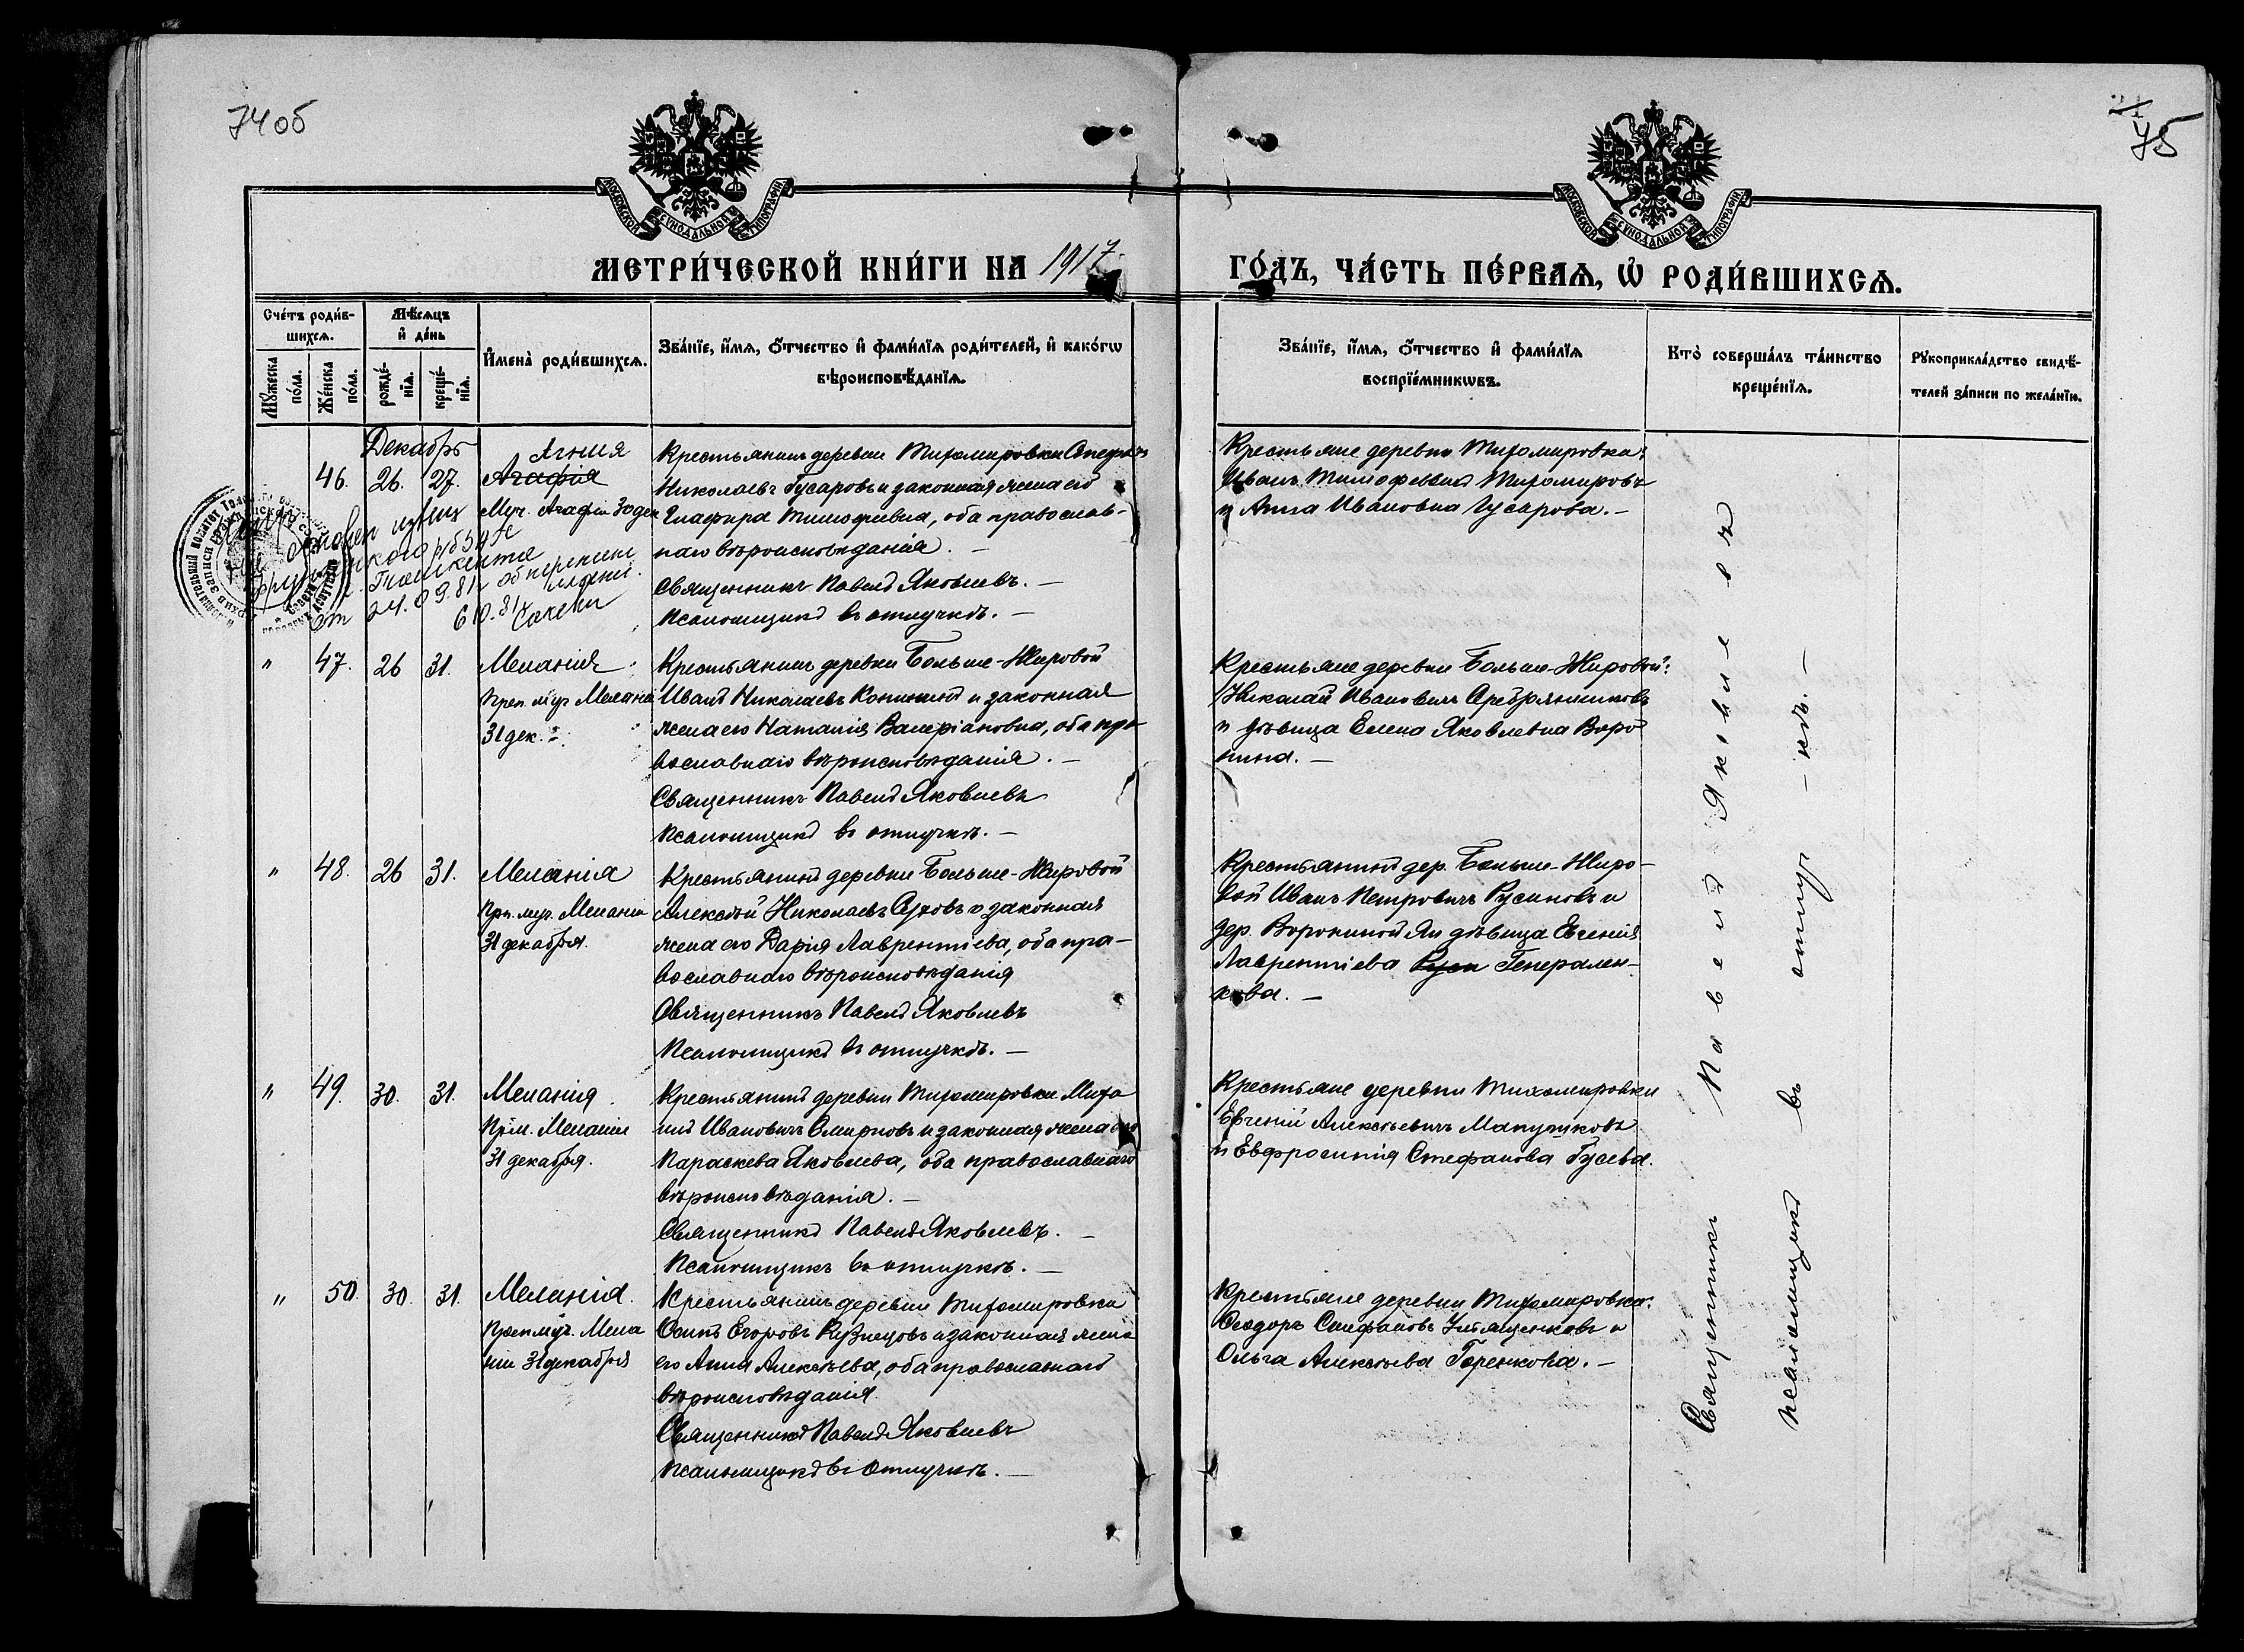 74об
75
МОСКОВСКОЙ СѴНОДАЛЬНОЙ ТИПОГРАФІИ
МОСКОВСКОЙ СѴНОДАЛЬНОЙ ТИПОГРАФІИ
МЕТРИ́ЧЕСКОЙ КНИ́ГИ НА 1917
ГО́ДЪ, ЧА́СТЬ ПЕ́РВАѦ, Ѡ҆ РОДИ́ВШИХСѦ.
Сче́тъ роди́в-
шихсѧ.
Мꙋ́жеска по́ла.
Же́нска по́ла.
Мѣ́сѧцъ
и҆ де́нь
рожде́-
нїѧ.
креще́-
нїѧ.
И҆мена̀ роди́вшихсѧ.
Зва́нїе, и҆́мѧ, ѻ҆́тчество и҆ фами́лїѧ роди́телей, и҆ како́гѡ
вѣроисповѣ́данїѧ.
Зва́нїе, и҆́мѧ, ѻ҆́тчество и҆ фами́лїѧ
воспрїе́мникѡвъ.
Кто̀ соверша́лъ та́инство
креще́нїѧ.
Рꙋкоприкла́дство свидѣ́-
телей за́писи по жела́нїю.
Декабрь
46. 26. 27.
Агнія
Агафія
Муч. Агафіи 30 дек
Крестьянинъ деревни Тихомировки Стефанъ
Николаевъ Гусаровъ и законная жена его
Глафира Тимофеевна, оба православ-
наго вѣроисповѣданія. —
Священникъ Павелъ Яковлевъ. —
Псаломщикъ въ отлучкѣ. —
Крестьяне деревни Тихомировки:
Иванъ Тимофеевъ Тихомировъ
и Анна Ивановна Гусарова. —
г. Ташкента
от 24.09.81 о перемене
имени.
6 10.81г
" 47. 26 31.
Меланія
Преп. муч. Меланіи
31 дек.
Крестьянинъ деревни Больше-Жировой
Иванъ Николаевъ и законная
жена его Наталія Валеріановна, оба пра
вославнаго вѣроисповѣданія. —
Священникъ Павелъ Яковлевъ
Псаломщикъ въ отлучкѣ. —
Крестьяне деревни Больше-Жировой:
Николай Ивановичъ Сребрянниковъ
и дѣвица Елена Яковлевна Воро
нина. —
" 48. 26 31.
Меланія
Прп. муч. Меланіи
31 декабря.
Крестьянинъ деревни Больше-Жировой
Алексѣй Николаевъ Суховъ и законная
жена его Дарія Лаврентіева, оба пра-
вославнаго вѣроисповѣданія
Священникъ Павелъ Яковлевъ
Псаломщикъ въ отлучкѣ. —
Крестьянинъ дер. Больше-Жиро-
вой Иванъ Петровичъ Русиновъ и
дер. Ворониной Яи дѣвица Евгенія
Лаврентіева Руси Генерален-
кова. —
" 49. 30. 31.
Меланія
Прм. Меланіи
31 декабря.
Крестьянинъ деревни Тихомировки Миха
илъ Ивановичъ Смирновъ и законная жена его
Параскева Яковлева, оба православнаго
вѣроисповѣданія. —
Священникъ Павелъ Яковлевъ. —
Псаломщикъ въ отлучкѣ. —
Крестьяне деревни Тихомировки
Евгеній Алексѣевичъ
и Евфросинія Стефанова Гусева.
" 50. 30. 31.
Меланія.
Преп. муч. Мела
ніи 31 декабря
Крестьянинъ деревни Тихомировки
Осипъ Егоровъ Кузнецовъ и законная жена
его Анна Алексѣева, оба православнаго
вѣроисповѣданія.
Священникъ Павелъ Яковлевъ
Псаломщикъ въ отлучкѣ. —
Крестьяне деревни Тихомировки:
Ѳеодоръ и
Ольга Алексѣева Горенкова. —
Священникъ Павелъ Яковлевъ
псаломщикъ въ отлуч-кѣ. —